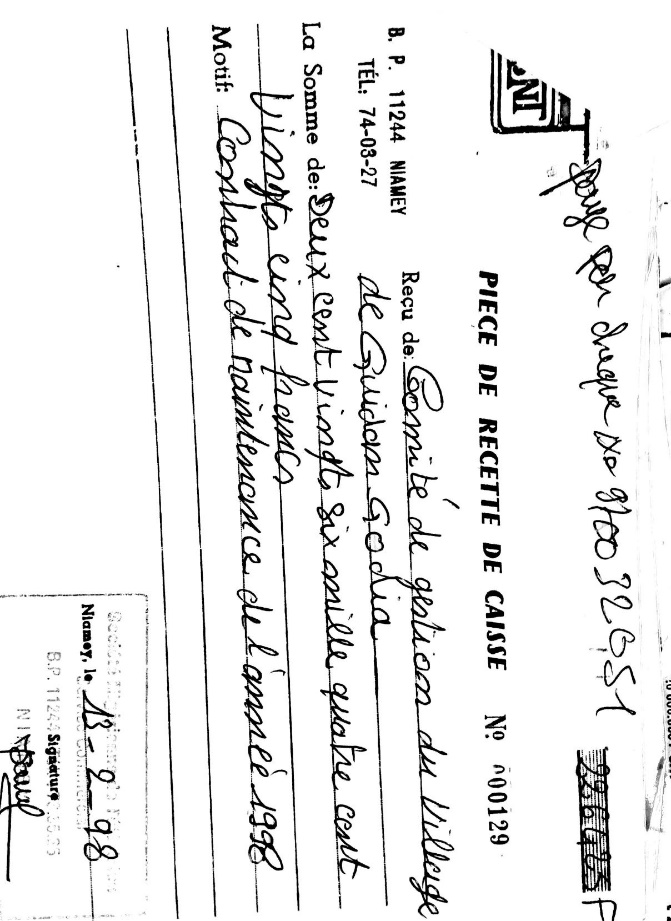 payé par chèque No 970032651
226425 F
PIECE DE RECETTE DE CAISSE Nº 000129
B. P. 11244 NIAMEY
TÉL: 74-03-27
Reçu de: Comité de gestion du Village
de Guidan Godia
La Somme de: Deux cent vingts six mille quatre cent
Vingts cinq francs
Motif: Contrat de maintenance de l'année 1998
Niamey, le 13-2-98
B.P. 11244
Signature